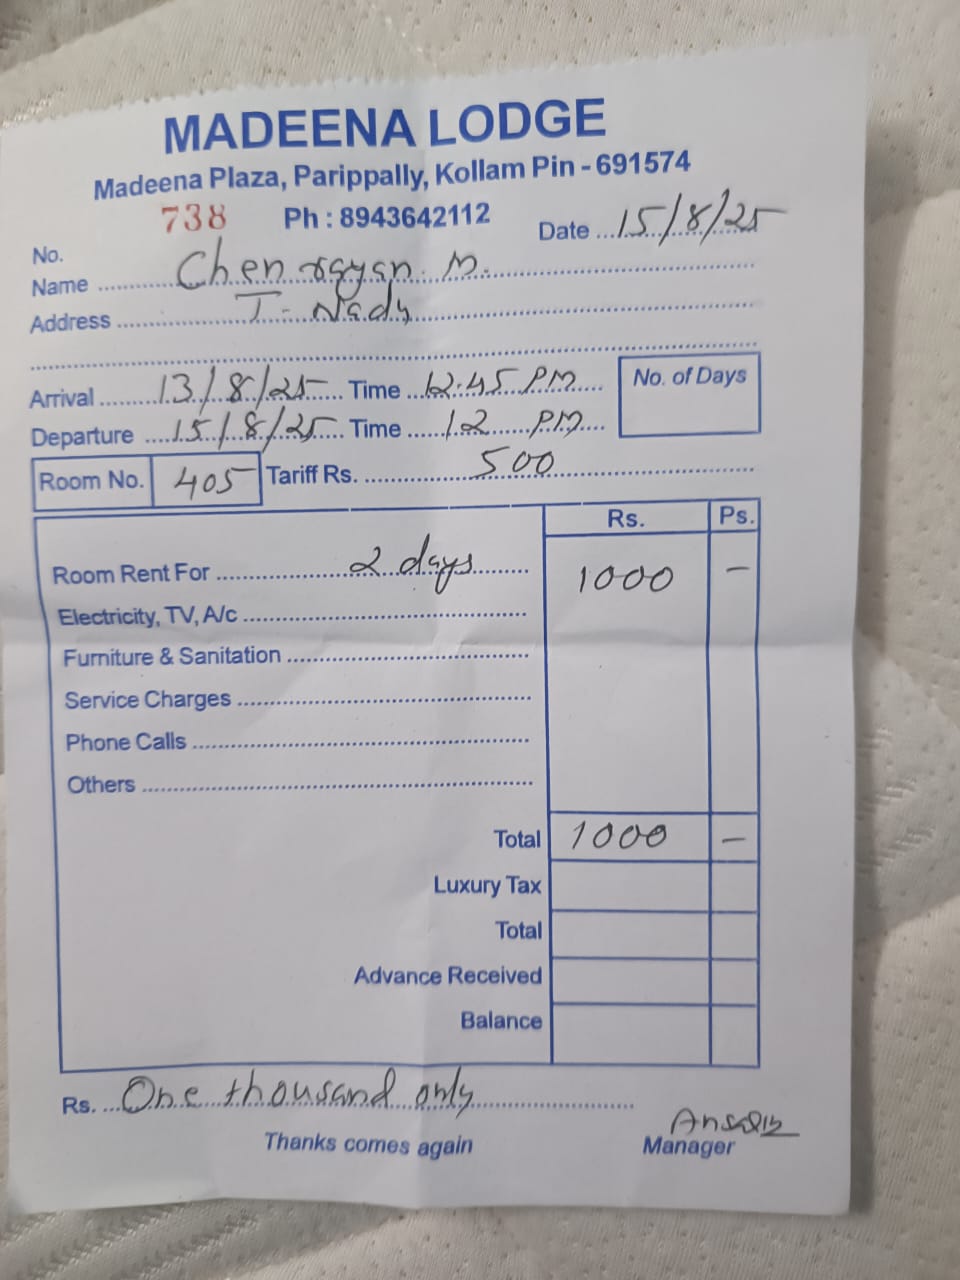 MADEENA LODGE
Madeena Plaza, Parippally, Kollam Pin - 691574
738 Ph : 8943642112 Date 15/8/25
No.
Name Chenrayan. M.
Address T. Nady
Arrival 13/8/25 Time 12.45 PM No. of Days
Departure 15/8/25 Time 12 PM
Room No. 405 Tariff Rs. 500
Rs. Ps.
Room Rent For 2 days 1000 –
Electricity, TV, A/c
Furniture & Sanitation
Service Charges
Phone Calls
Others
Total 1000 –
Luxury Tax
Total
Advance Received
Balance
Rs. One thousand only
Thanks comes again Manager